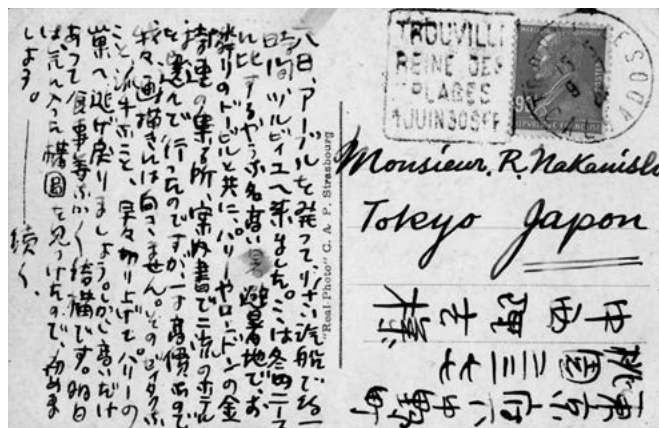 TROUVILLE
REINE DES
PLAGES
1JUIN30SEP
Monsieur. R. Nakanishi
Tokyo Japon
東京
中野町
桃園三三七七
中西
様
"Real-Photo" C. A. P. Strasbourg
八日、アーブルを発って小さい汽船で約一
時間、ツルビイユへ来ました。こゝは冬のニース
に比するやうな名高い避暑地で、お
隣りのドービルと共に、パリーやロンドンの金
持連の集る所、案内書で二流のホテル
を選んで行ったのですが、一寸高價なので
我々画描きには向きません。そのゼイタクな
こと、派手なこと、早々切り上げてパリーの
巣へ逃げ戻りましょう。しかし高いだけ
あって食事等 結構です。明日
は気に入った構圖を見つけたので、初めま
します。――続く、